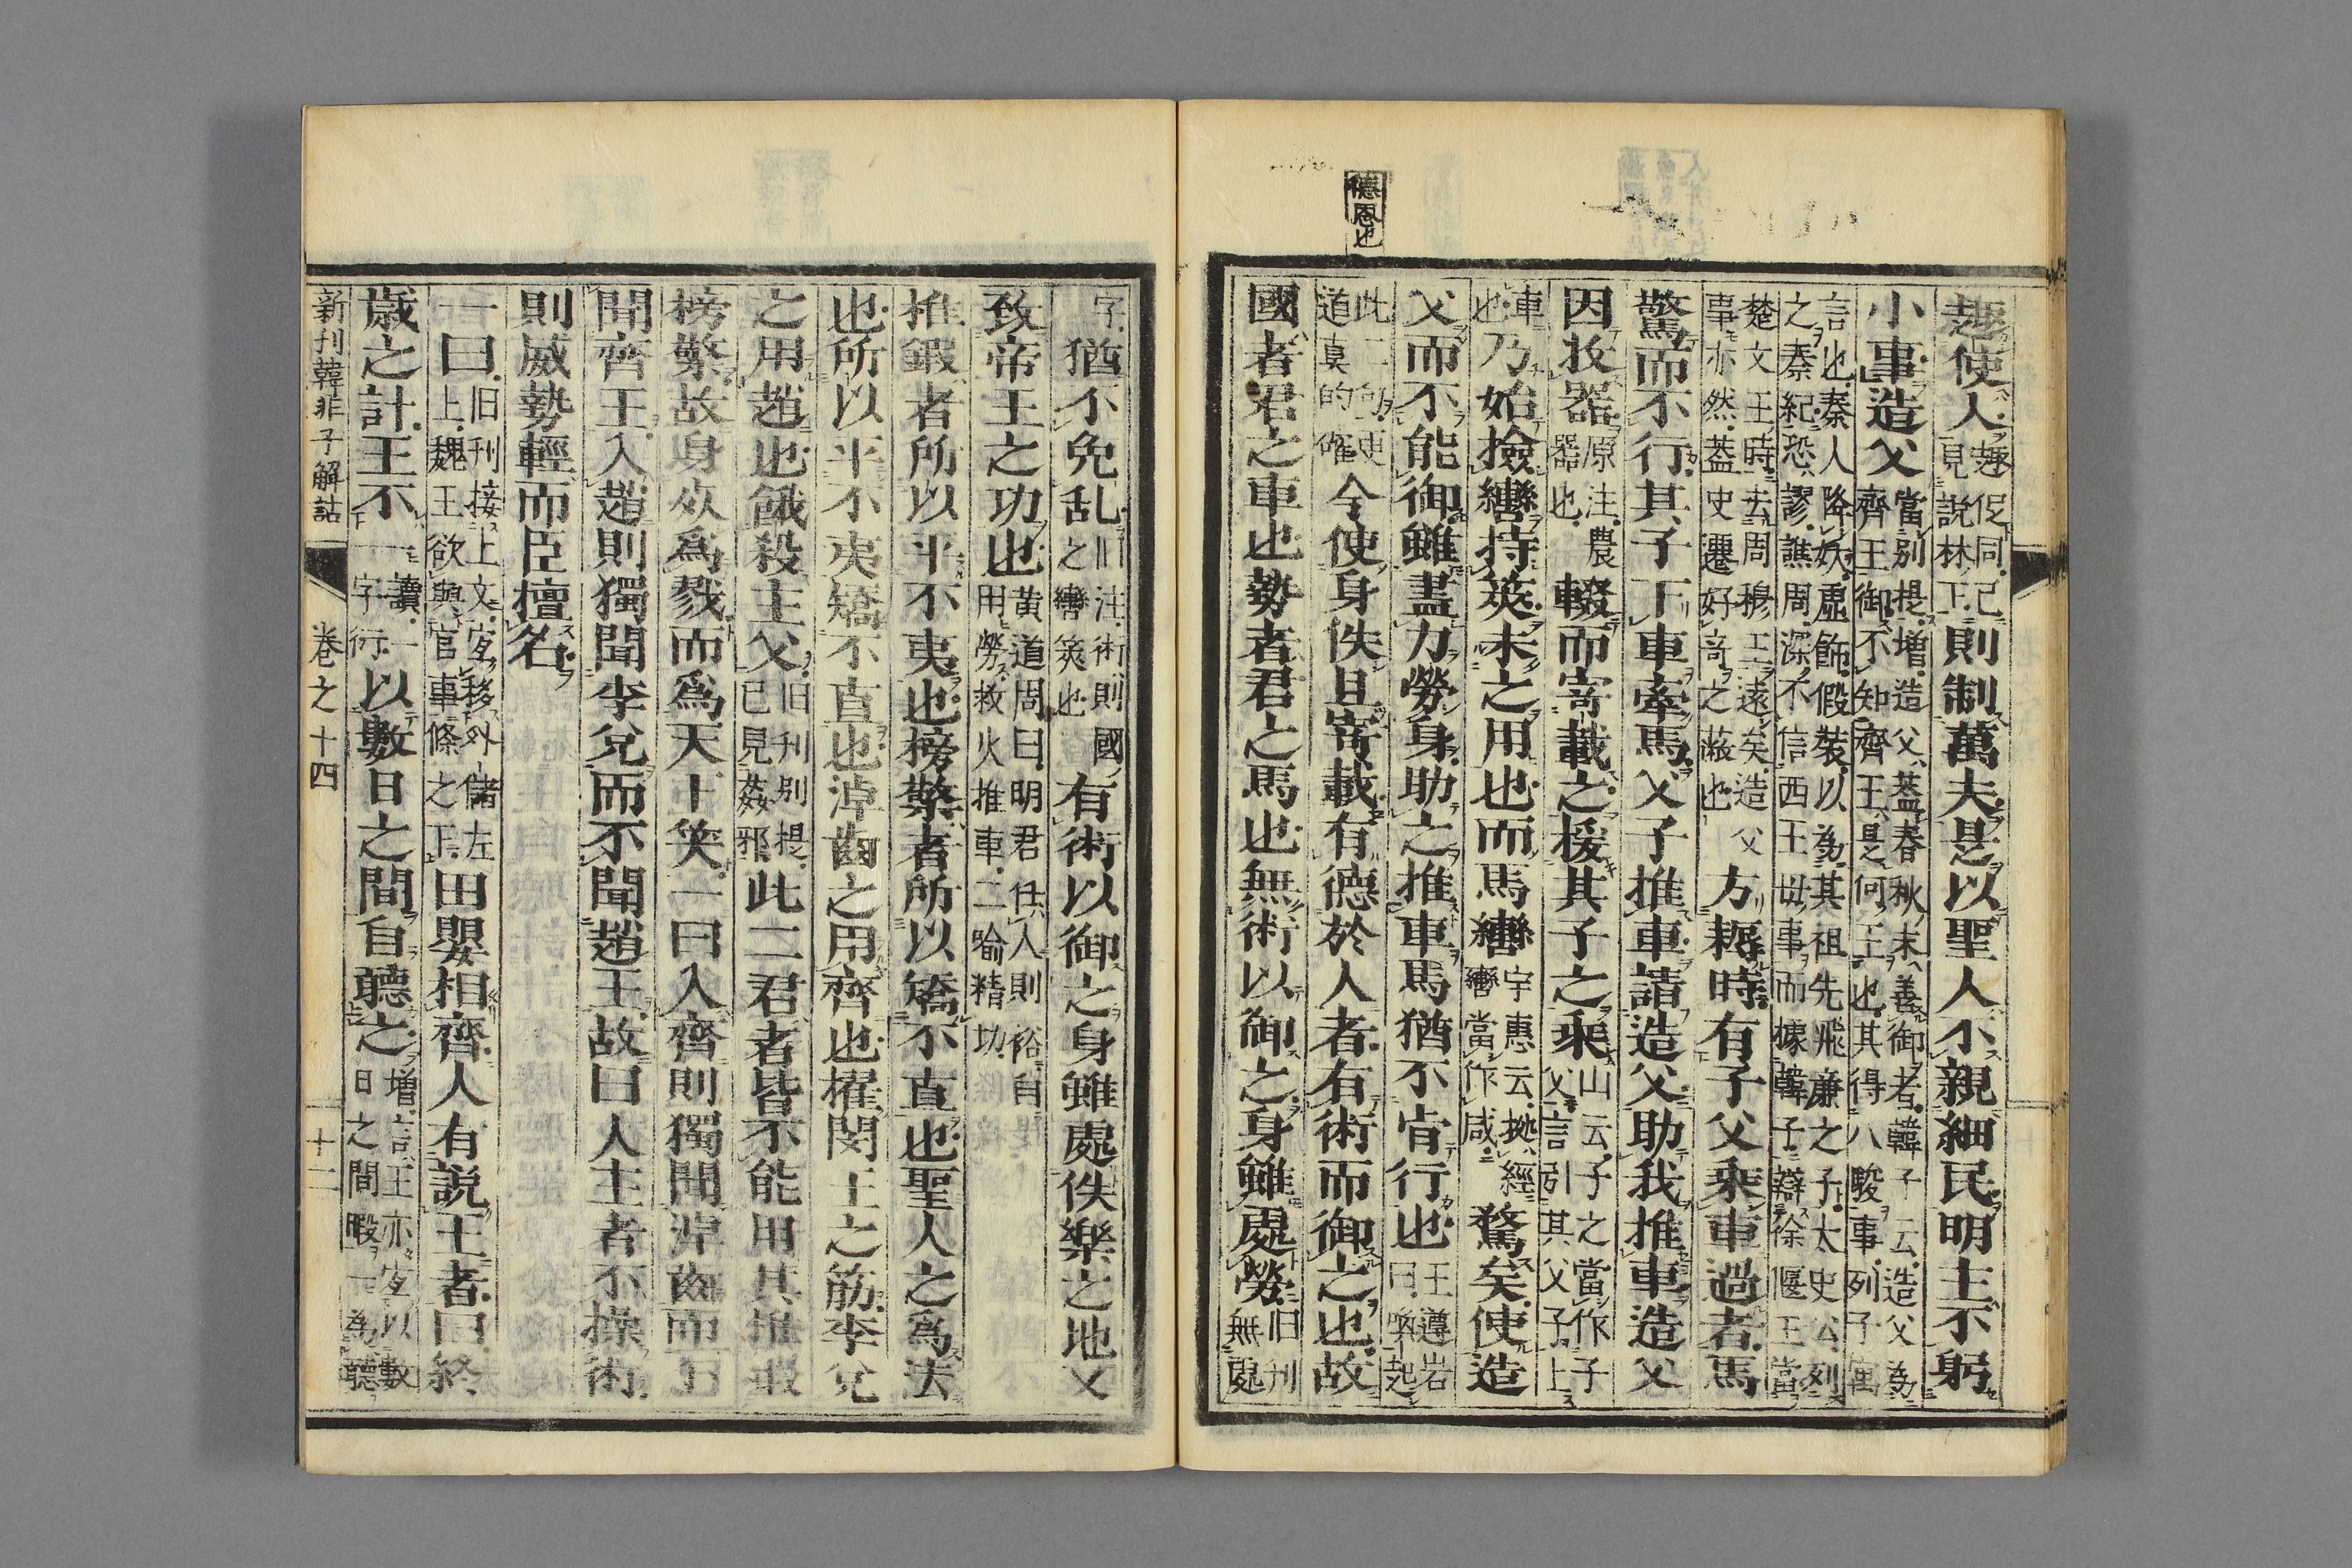 德恩也
趣使人趣促同已見説林下則制萬夫是以聖人不親細民明主不躬
小事造父當別提增造父蓋春秋末善御者韓子云造父為齊王御不知齊王是何王也其得八駿事列子寓
言也秦人降妖虛飾假裝以為其祖先飛廉之子太史公列之秦紀恐謬譙周深不信西王毋事而據韓子辯徐偃王當
楚文王時去周穆王遠矣造父事亦然蓋史遷好奇之蔽也方耨時有子父乘車過者馬
驚而不行其子下車牽馬父子推車請造父助我推車造父
因收器原注農器也輟而寄載之援其子之乘山云子之當作子父言引其父子上
車也乃始撿轡持筴未之用也而馬轡宇惠云拠經轡當作咸騖矣使造
父而不能御雖盡力勞身助之推車馬猶不肯行也王遵岩曰喚起
此二句更道真的確今使身佚且寄載有德於人者有術而御之也故
國者君之車也勢者君之馬也無術以御之身雖處勞旧刊無處
字猶不免乱旧注術則國之轡筴也有術以御之身雖處佚樂之地又
致帝王之功也黄道周曰明君任人則裕自用勞救火推車二喻精切
推鍜者所以平不夷也榜檠者所以矯不直也聖人之爲法
也所以平不夷矯不直也淖齒之用齊也擢閔王之筋李兌
之用趙也餓殺主父旧刊別提已見姦邪此二君者皆不能用其推鍜
榜檠故身死爲戮而爲天下笑一曰入齊則獨聞淖齒而不
聞齊王入趙則獨聞李兌而不聞趙王故曰人主者不操術
則威勢輕而臣擅名
一曰旧刊接上文宜移外儲左上魏王欲與官事條之下田嬰相齊人有説王者曰終
歳之計王不一讀一字衍以數日之間自聽之增言王亦宜以數日之間暇一為聽
新刊韓非子解詁 卷之十四 十二